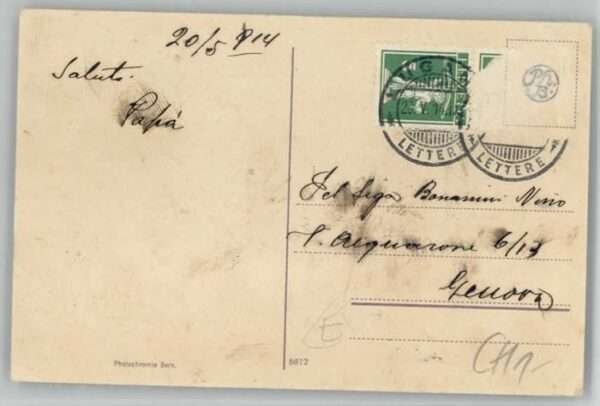 20/5 914
Saluti.
Papà
LUGANO
LETTERE
LETTERE
Ph.
B.
Bonamini Nino
S. Acquarone 6/13
Genova
Photochromie Bern.
8672
CH1-